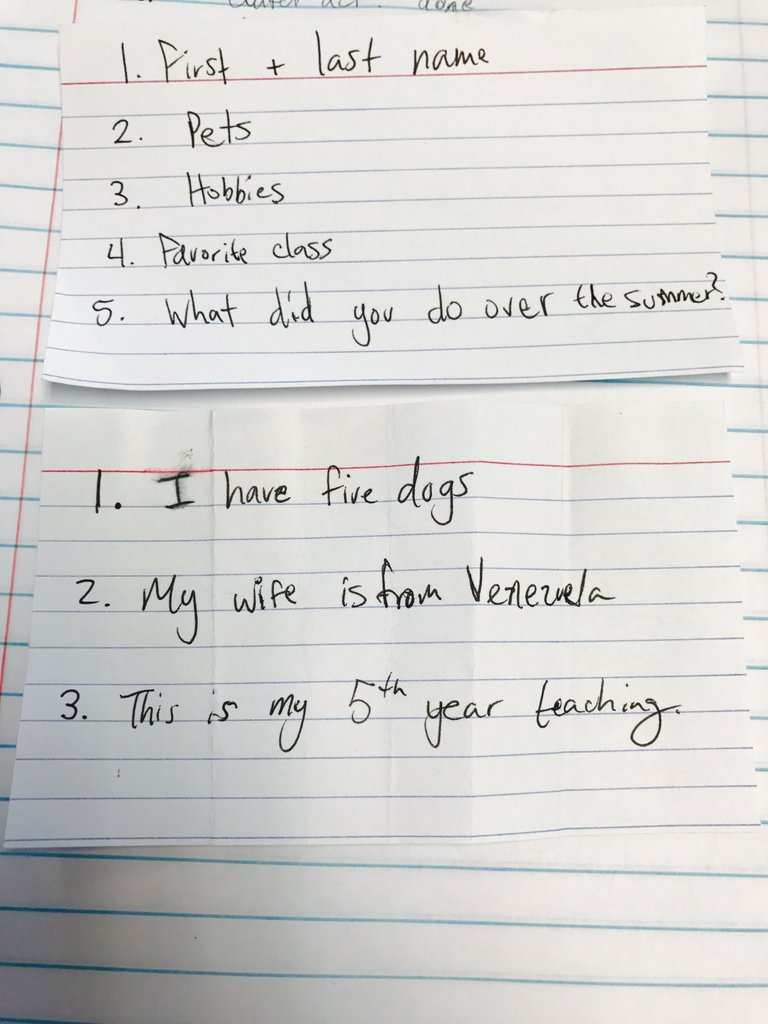 done
1. First + last name
2. Pets
3. Hobbies
4. Favorite class
5. What did you do over the summer?
1. I have five dogs
2. My wife is from Venezuela
3. This is my 5th year teaching.